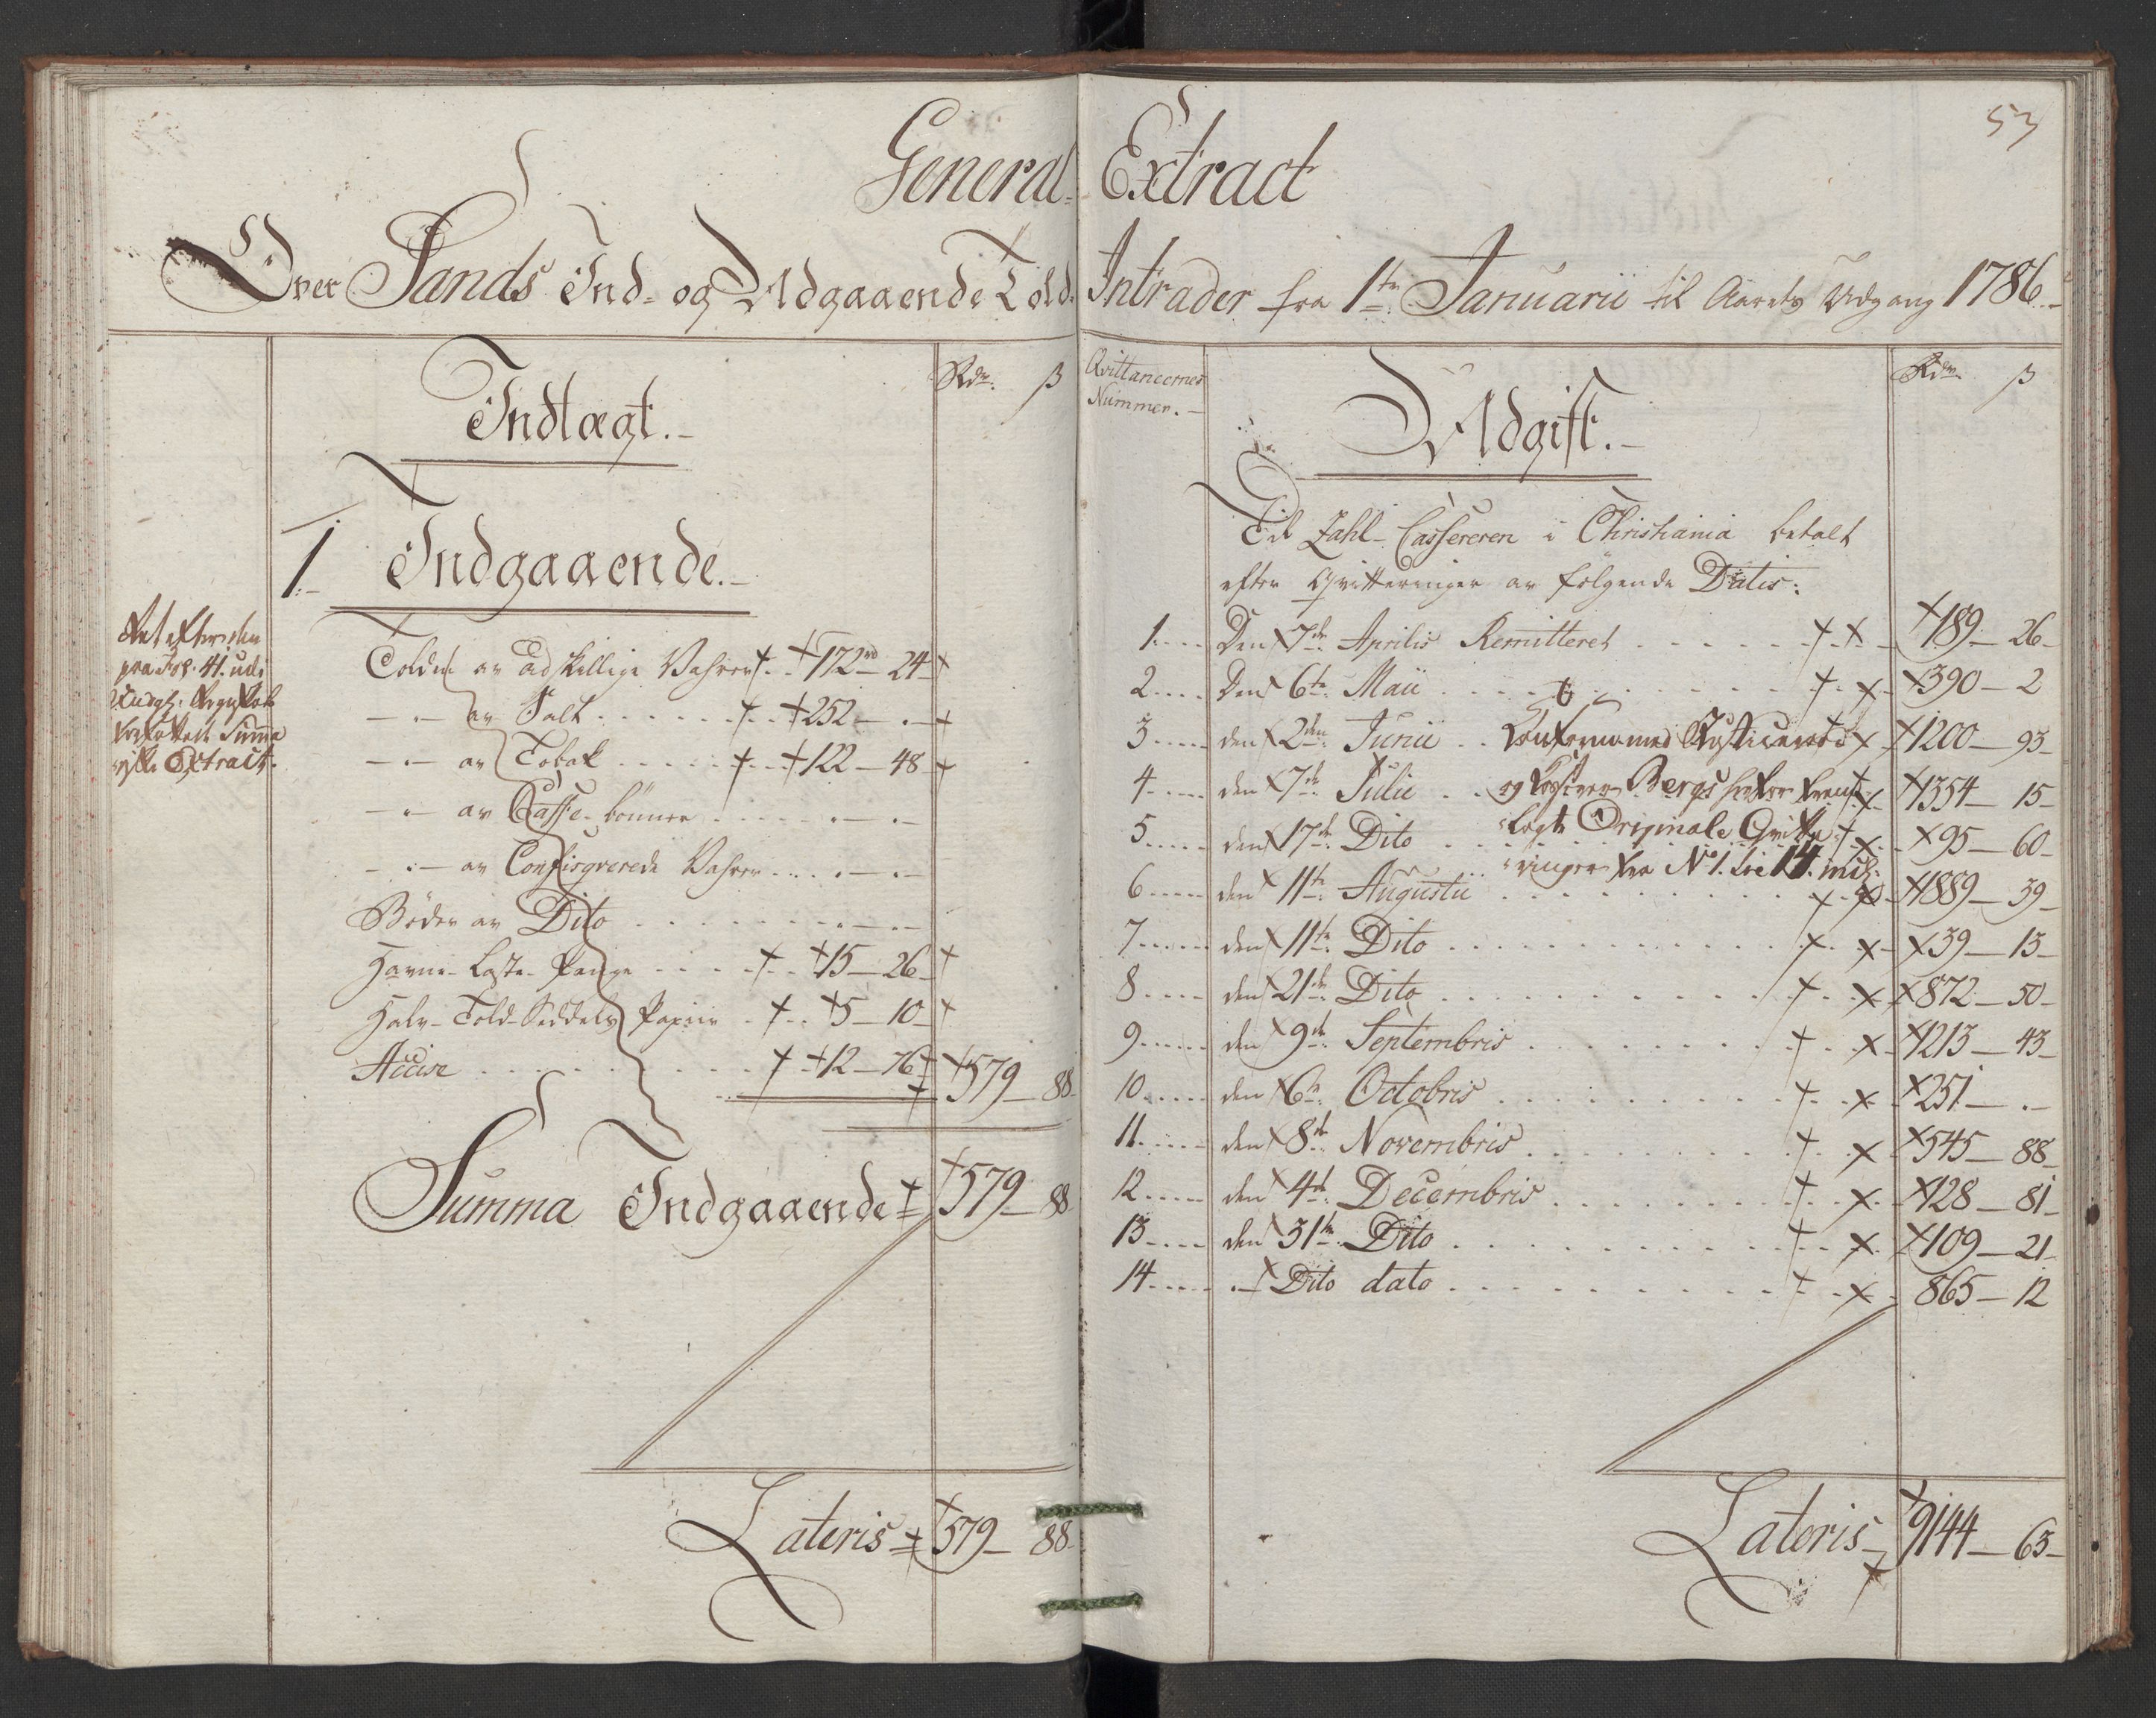 53
General- Extract
Over Sands Ind- og Udgaaende Told- Intrader fra 1te Januarii til Aarets Udgang 1786.-
Rdr. β
Indtægt.-
1. Indgaaende.-
Ret efter den
pra Fol. 41. udi
Summa
Extract.
Tolden av adskellige Vahrer 172 rd 24
— " — av Salt 252 - . -
— " — av Tobak 122 - 48
— " — av Caffe-bønner . - . -
— " — av Confisqverede Vahrer . - . -
Bøder av Dito . - . -
Havne-Laste-Penge 15 - 26
Halv-Told-Seddels Papiir 5 - 10
Accise 12 - 76 579 - 88
Summa Indgaaende 579 - 88
Lateris 579 - 88
Qvittancernes
Nummer.-
Rdr. β
Udgift.-
Til Zahl-Cassereren i Christiania betalt
efter Qvitteringer av følgende Datis:
1 Den 7de Aprilis Remitteret 189 - 26
2 Den 6te Maii 390 - 2
3 den 2den Junii 1200 - 93
4 den 7de Julii 1354 - 15
5 den 17de Dito 95 - 60
6 den 11te Augustii 1889 - 39
7 den 11te Dito 39 - 13
8 den 21de Dito 872 - 50
9 den 9de Septembris 1213 - 43
10 den 6te Octobris 251 - . -
11 den 8de Novembris 545 - 88
12 den 4de Decembris 128 - 81
13 den 31te Dito 109 - 21
14 . - Dito dato 865 - 12
Conform med
og Bergs
Originale Qvitte-
ringer fra No 1. til 14. incl:
Lateris 9144 - 63